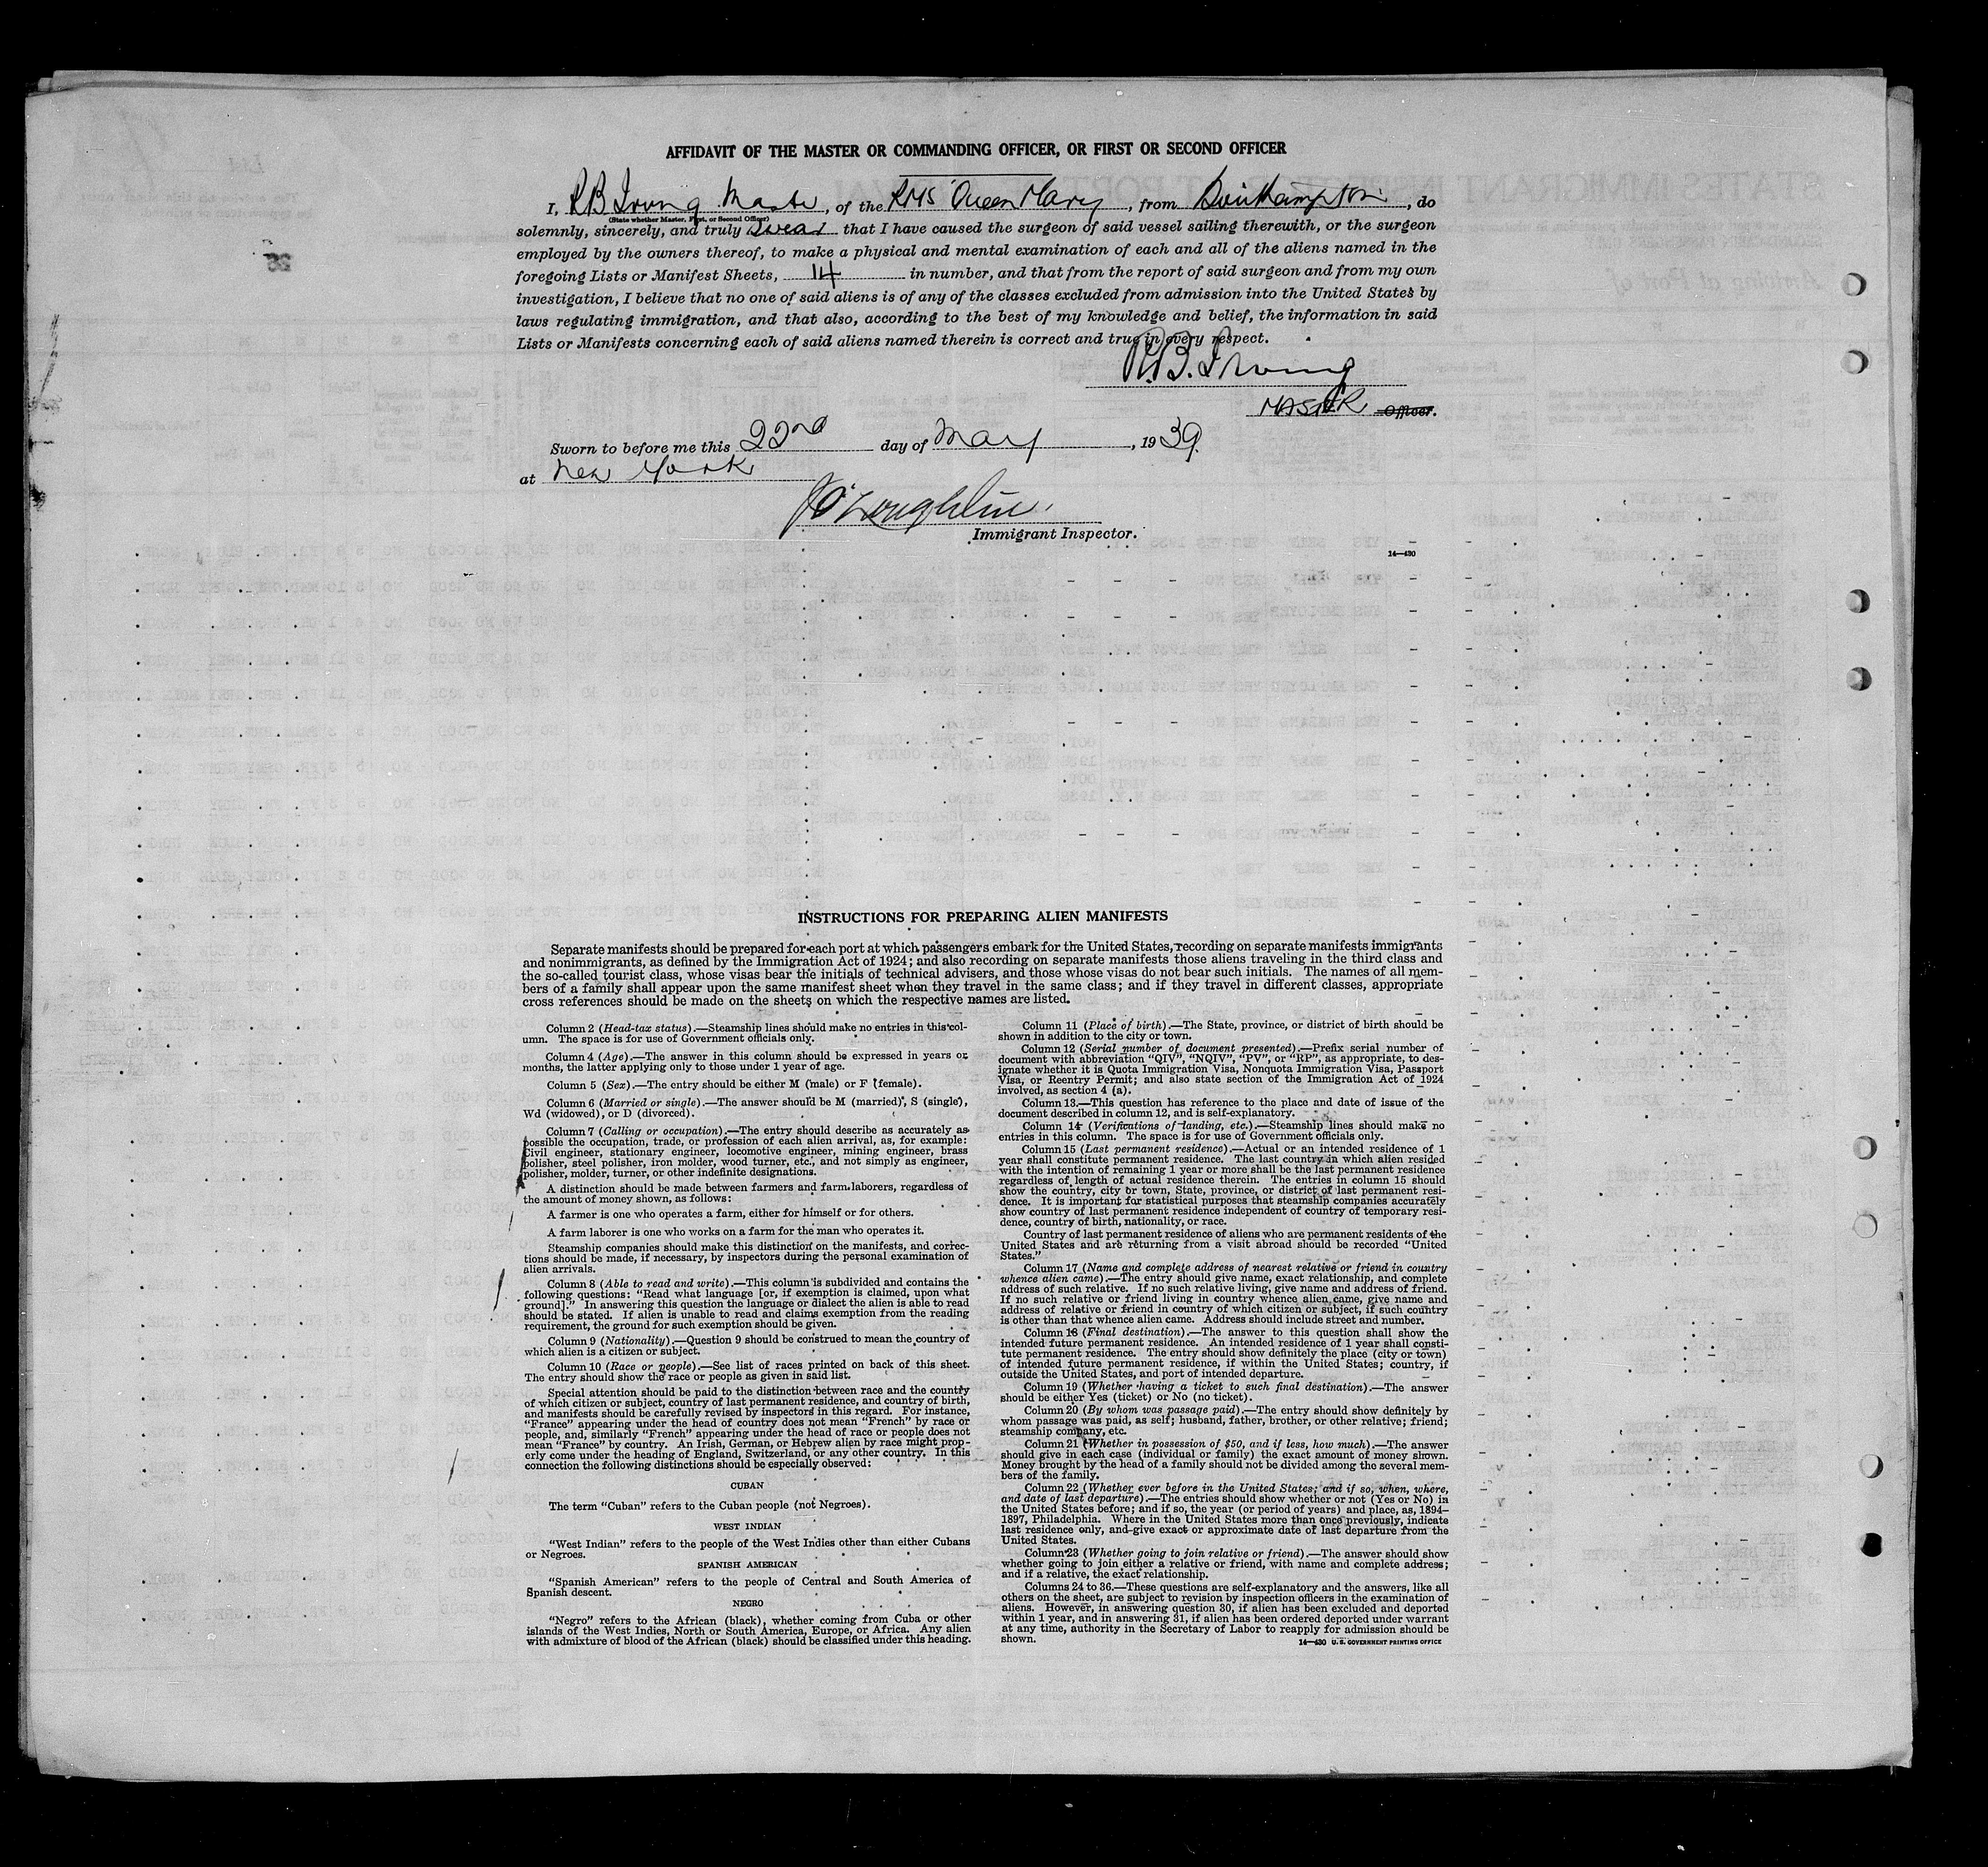 AFFIDAVIT OF THE MASTER OR COMMANDING OFFICER, OR FIRST OR SECOND OFFICER
I, RB Irving Master, of the RMS "Queen Mary, from Southampton, do
(State whether Master, First, or Second Officer)
solemnly, sincerely, and truly swear that I have caused the surgeon of said vessel sailing therewith, or the surgeon
employed by the owners thereof, to make a physical and mental examination of each and all of the aliens named in the
foregoing Lists or Manifest Sheets, 14 in number, and that from the report of said surgeon and from my own
investigation, I believe that no one of said aliens is of any of the classes excluded from admission into the United States by
laws regulating immigration, and that also, according to the best of my knowledge and belief, the information in said
Lists or Manifests concerning each of said aliens named therein is correct and true in every respect.
R.B. Irving
MASTER Officer.
Sworn to before me this 22nd day of May, 1939.
at New York
J O'Loughlin.
Immigrant Inspector.
14—430
INSTRUCTIONS FOR PREPARING ALIEN MANIFESTS
Separate manifests should be prepared for each port at which passengers embark for the United States, recording on separate manifests immigrants
and nonimmigrants, as defined by the Immigration Act of 1924; and also recording on separate manifests those aliens traveling in the third class and
the so-called tourist class, whose visas bear the initials of technical advisers, and those whose visas do not bear such initials. The names of all mem-
bers of a family shall appear upon the same manifest sheet when they travel in the same class; and if they travel in different classes, appropriate
cross references should be made on the sheets on which the respective names are listed.
Column 2 (Head-tax status).—Steamship lines should make no entries in this col-
umn. The space is for use of Government officials only.
Column 4 (Age).—The answer in this column should be expressed in years or
months, the latter applying only to those under 1 year of age.
Column 5 (Sex).—The entry should be either M (male) or F (female).
Column 6 (Married or single).—The answer should be M (married), S (single),
Wd (widowed), or D (divorced).
Column 7 (Calling or occupation).—The entry should describe as accurately as
possible the occupation, trade, or profession of each alien arrival, as, for example:
Civil engineer, stationary engineer, locomotive engineer, mining engineer, brass
polisher, steel polisher, iron molder, wood turner, etc., and not simply as engineer,
polisher, molder, turner, or other indefinite designations.
A distinction should be made between farmers and farm laborers, regardless of
the amount of money shown, as follows:
A farmer is one who operates a farm, either for himself or for others.
A farm laborer is one who works on a farm for the man who operates it.
Steamship companies should make this distinction on the manifests, and correc-
tions should be made, if necessary, by inspectors during the personal examination of
alien arrivals.
Column 8 (Able to read and write).—This column is subdivided and contains the
following questions: "Read what language [or, if exemption is claimed, upon what
ground]." In answering this question the language or dialect the alien is able to read
should be stated. If alien is unable to read and claims exemption from the reading
requirement, the ground for such exemption should be given.
Column 9 (Nationality).—Question 9 should be construed to mean the country of
which alien is a citizen or subject.
Column 10 (Race or people).—See list of races printed on back of this sheet.
The entry should show the race or people as given in said list.
Special attention should be paid to the distinction between race and the country
of which citizen or subject, country of last permanent residence, and country of birth,
and manifests should be carefully revised by inspectors in this regard. For instance,
"France" appearing under the head of country does not mean "French" by race or
people, and, similarly "French" appearing under the head of race or people does not
mean "France" by country. An Irish, German, or Hebrew alien by race might prop-
erly come under the heading of England, Switzerland, or any other country. In this
connection the following distinctions should be especially observed:
CUBAN
The term "Cuban" refers to the Cuban people (not Negroes).
WEST INDIAN
"West Indian" refers to the people of the West Indies other than either Cubans
or Negroes.
SPANISH AMERICAN
"Spanish American" refers to the people of Central and South America of
Spanish descent.
NEGRO
"Negro" refers to the African (black), whether coming from Cuba or other
islands of the West Indies, North or South America, Europe, or Africa. Any alien
with admixture of blood of the African (black) should be classified under this heading.
Column 11 (Place of birth).—The State, province, or district of birth should be
shown in addition to the city or town.
Column 12 (Serial number of document presented).—Prefix serial number of
document with abbreviation "QIV", "NQIV", "PV", or "RP", as appropriate, to des-
ignate whether it is Quota Immigration Visa, Nonquota Immigration Visa, Passport
Visa, or Reentry Permit; and also state section of the Immigration Act of 1924
involved, as section 4 (a).
Column 13.—This question has reference to the place and date of issue of the
document described in column 12, and is self-explanatory.
Column 14 (Verifications of landing, etc.).—Steamship lines should make no
entries in this column. The space is for use of Government officials only.
Column 15 (Last permanent residence).—Actual or an intended residence of 1
year shall constitute permanent residence. The last country in which alien resided
with the intention of remaining 1 year or more shall be the last permanent residence
regardless of length of actual residence therein. The entries in column 15 should
show the country, city or town, State, province, or district of last permanent resi-
dence. It is important for statistical purposes that steamship companies accurately
show country of last permanent residence independent of country of temporary resi-
dence, country of birth, nationality, or race.
Country of last permanent residence of aliens who are permanent residents of the
United States and are returning from a visit abroad should be recorded "United
States."
Column 17 (Name and complete address of nearest relative or friend in country
whence alien came).—The entry should give name, exact relationship, and complete
address of such relative. If no such relative living, give name and address of friend.
If no such relative or friend living in country whence alien came, give name and
address of relative or friend in country of which citizen or subject, if such country
is other than that whence alien came. Address should include street and number.
Column 18 (Final destination).—The answer to this question shall show the
intended future permanent residence. An intended residence of 1 year shall consti-
tute permanent residence. The entry should show definitely the place (city or town)
of intended future permanent residence, if within the United States; country, if
outside the United States, and port of intended departure.
Column 19 (Whether having a ticket to such final destination).—The answer
should be either Yes (ticket) or No (no ticket).
Column 20 (By whom was passage paid).—The entry should show definitely by
whom passage was paid, as self; husband, father, brother, or other relative; friend;
steamship company, etc.
Column 21 (Whether in possession of $50, and if less, how much).—The answer
should give in each case (individual or family) the exact amount of money shown.
Money brought by the head of a family should not be divided among the several mem-
bers of the family.
Column 22 (Whether ever before in the United States; and if so, when, where,
and date of last departure).—The entries should show whether or not (Yes or No) in
the United States before; and if so, the year (or period of years) and place, as, 1894–
1897, Philadelphia. Where in the United States more than once previously, indicate
last residence only, and give exact or approximate date of last departure from the
United States.
Column 23 (Whether going to join relative or friend).—The answer should show
whether going to join either a relative or friend, with name and complete address;
and if a relative, the exact relationship.
Columns 24 to 36.—These questions are self-explanatory and the answers, like all
others on the sheet, are subject to revision by inspection officers in the examination of
aliens. However, in answering question 30, if alien has been excluded and deported
within 1 year, and in answering 31, if alien has been ordered deported under warrant
at any time, authority in the Secretary of Labor to reapply for admission should be
shown.
14—430 U. S. GOVERNMENT PRINTING OFFICE